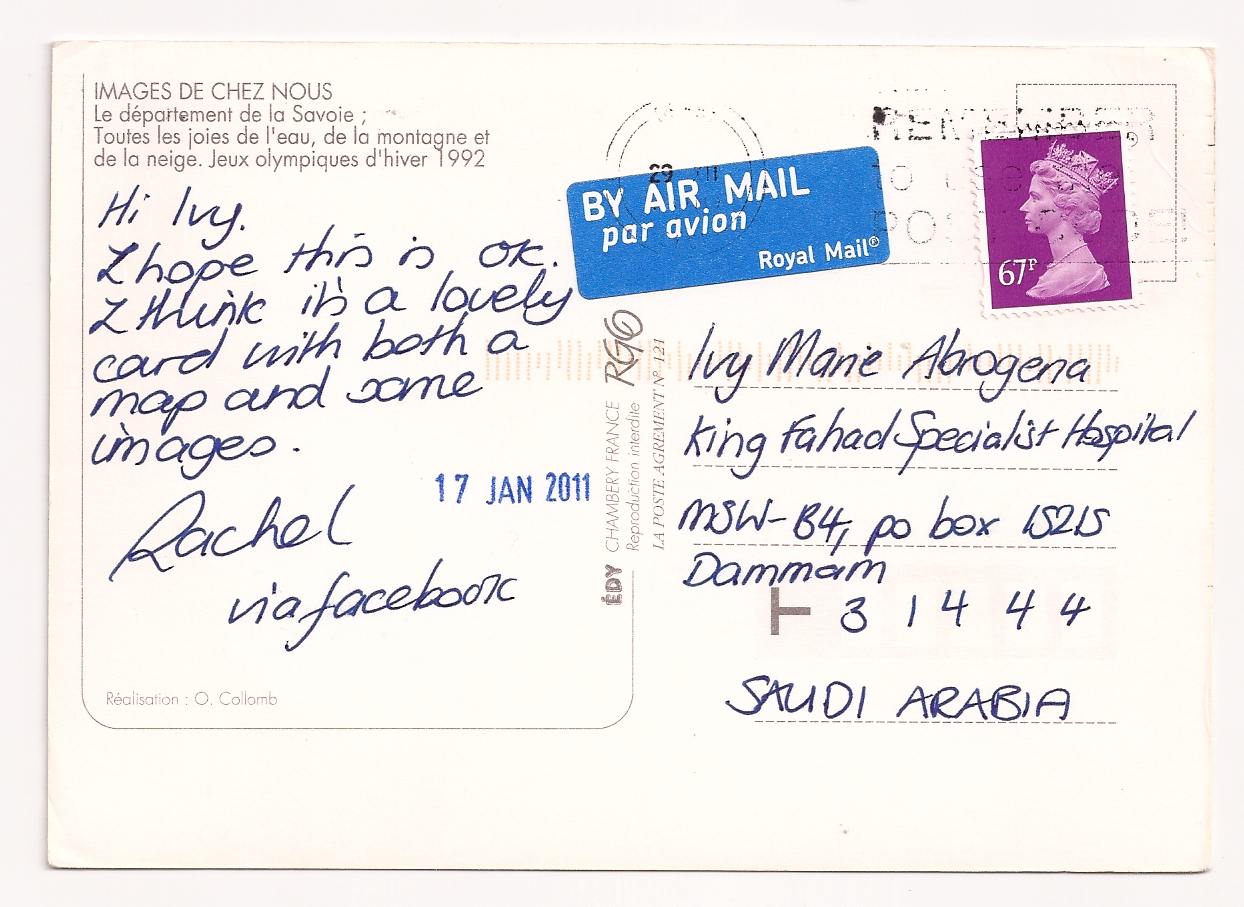 IMAGES DE CHEZ NOUS
Le département de la Savoie ;
Toutes les joies de l'eau, de la montagne et
de la neige. Jeux olympiques d'hiver 1992
Hi Ivy.
I hope this is OK.
I think it's a lovely
card with both a
map and some
images.
Rachel
via facebook
17 JAN 2011
Réalisation : O. Collomb
ÉDY CHAMBERY FRANCE
Reproduction interdite
LA POSTE AGREMENT N° 121
29 VII
BY AIR MAIL
par avion
Royal Mail®
REMEMBER
TO USE
POSTCODE
67P
Ivy Marie Abrogena
King Fahad Specialist Hospital
MSW-B4, po box 15215
Dammam
31444
SAUDI ARABIA